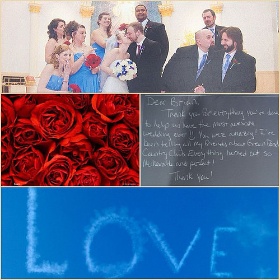 Dear Brian
Thank you for everything you've done
to help me have the most awesome
wedding ever!! You were amazing! I've
been telling all my friends about
Country Club. Everything turned out so
and perfect!
Thank you!
LOVE